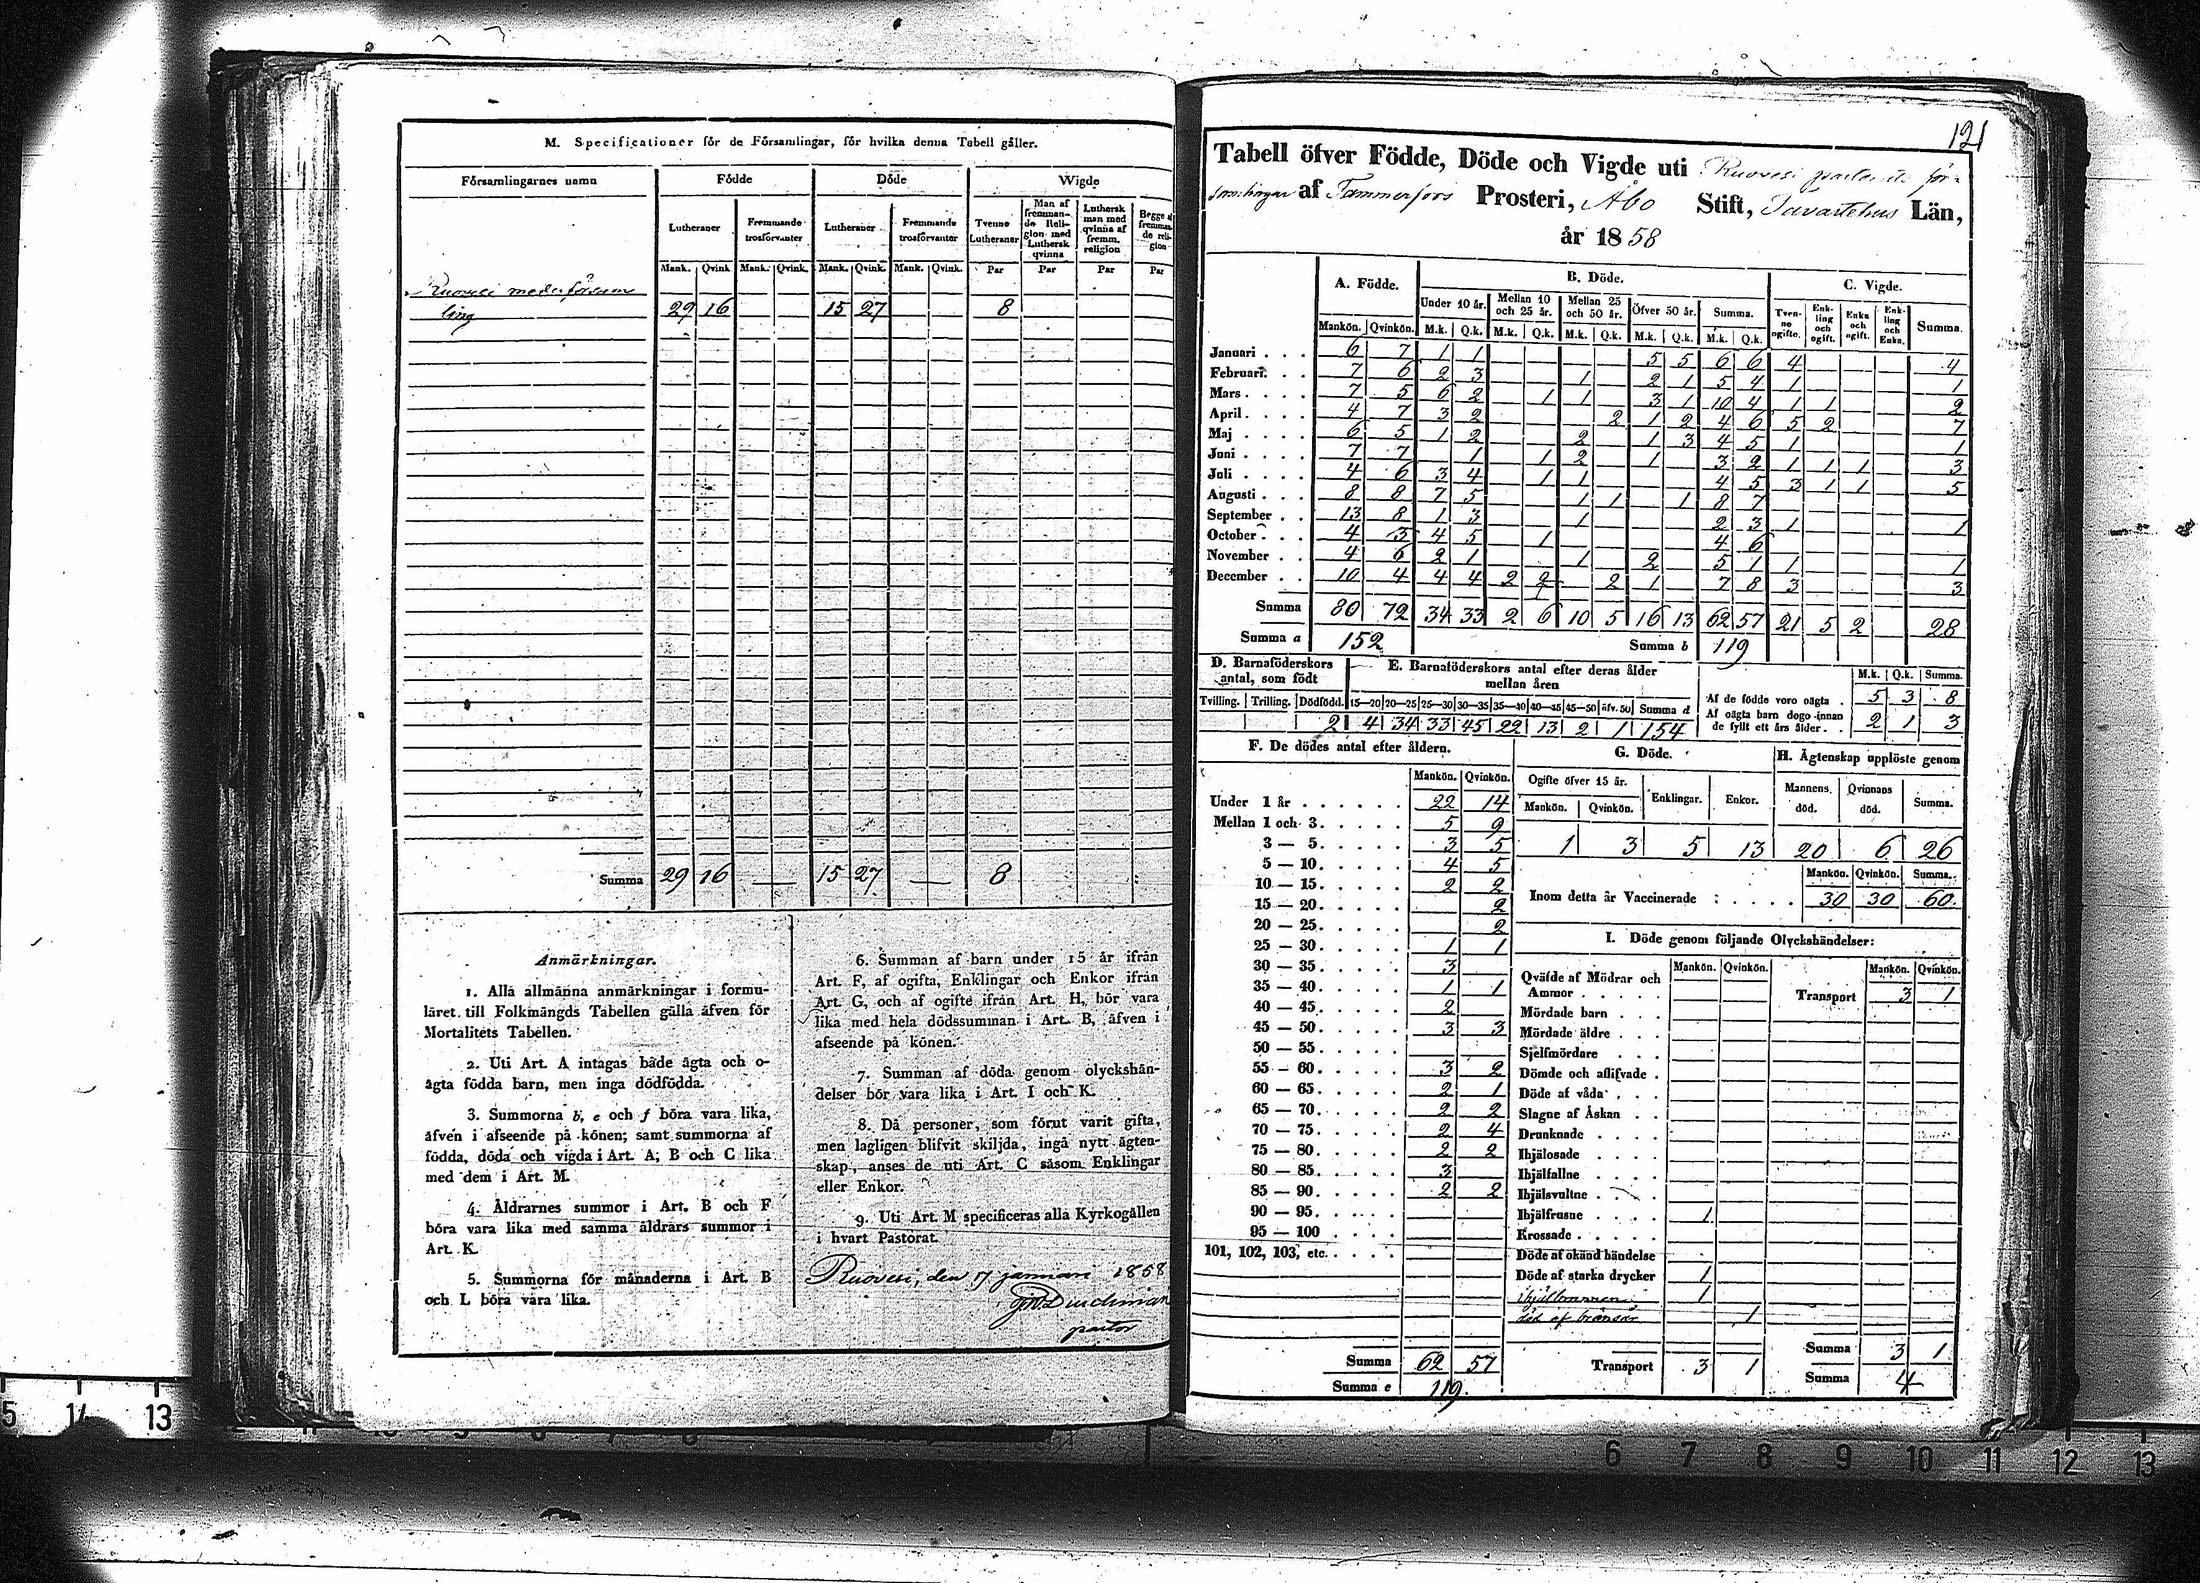 M. Specificationer för de Församlingar, för hvilka denna Tabell gäller.
Församlingarnes namn Födde Döde Wigde
Lutheraner Fremmande trosförvanter Lutheraner Fremmande trosförvanter Tvenne Lutheraner Man af fremmande Religion med Luthersk qvinna Luthersk man med qvinna af fremm. religion Begge af fremmande religion
Mank. Qvink. Mank. Qvink. Mank. Qvink. Mank. Qvink. Par Par Par Par
Ruovesi moderförsam
ling 29 16 15 27 8
Summa 29 16 — 15 27 — 8
Anmärkningar.
1. Alla allmänna anmärkningar i formu-
läret till Folkmängds Tabellen gälla äfven för
Mortalitets Tabellen.
2. Uti Art. A intagas både ägta och o-
ägta födda barn, men inga dödfödda.
3. Summorna b, e och f böra vara lika,
äfven i afseende på könen; samt summorna af
födda, döda och vigda i Art. A, B och C lika
med dem i Art. M.
4. Åldrarnes summor i Art. B och F
böra vara lika med samma åldrars summor i
Art. K.
5. Summorna för månaderna i Art. B
och L böra vara lika.
6. Summan af barn under 15 år ifrån
Art. F, af ogifta, Enklingar och Enkor ifrån
Art. G, och af ogifte ifrån Art. H, bör vara
lika med hela dödssumman i Art. B, äfven i
afseende på könen.
7. Summan af döda genom olyckshän-
delser bör vara lika i Art. I och K.
8. Då personer, som förut varit gifta,
men lagligen blifvit skiljda, ingå nytt ägten-
skap, anses de uti Art. C såsom Enklingar
eller Enkor.
9. Uti Art. M specificeras alla Kyrkogällen
i hvart Pastorat.
Ruovesi, den 17 januari 1858
pastor
121
Tabell öfver Födde, Döde och Vigde uti Ruovesi för-
samlingar af Tammerfors Prosteri, Åbo Stift, Tavastehus Län,
år 1858
A. Födde. B. Döde. C. Vigde.
Under 10 år. Mellan 10 och 25 år. Mellan 25 och 50 år. Öfver 50 år. Summa. Tvenne ogifte. Enkling och ogift. Enka och ogift. Enkling och Enka. Summa.
Mankön. Qvinkön. M.k. Q.k. M.k. Q.k. M.k. Q.k. M.k. Q.k. M.k. Q.k.
Januari . . . 6 7 1 1 5 5 6 6 4 4
Februari. . . 7 6 2 3 1 2 1 5 4 1 1
Mars . . . . 7 5 6 2 1 1 3 1 10 4 1 1 2
April . . . . 4 7 3 2 2 1 2 4 6 5 2 7
Maj . . . . 6 5 1 2 2 1 3 4 5 1 1
Juni . . . . 7 7 1 1 2 1 3 2 1 1 1 3
Juli . . . . 4 6 3 4 1 1 4 5 3 1 1 5
Augusti . . . 8 8 7 5 1 1 1 8 7
September . . 13 8 1 3 1 2 3 1 1
October . . . 4 3 4 5 1 4 6
November . . 4 6 2 1 1 2 5 1 1 1
December . . 10 4 4 4 2 2 2 1 7 8 3 3
Summa 80 72 34 33 2 6 10 5 16 13 62 57 21 5 2 28
Summa a 152 Summa b 119
D. Barnaföderskors antal, som födt
E. Barnaföderskors antal efter deras ålder mellan åren
Tvilling. Trilling. Dödfödd. 15—20 20—25 25—30 30—35 35—40 40—45 45—50 öfv. 50 Summa d
2 4 34 33 45 22 13 2 1 154
M.k. Q.k. Summa.
Af de födde voro oägta . 5 3 8
Af oägta barn dogo innan
de fyllt ett års ålder . . 2 1 3
F. De dödes antal efter åldern.
Mankön. Qvinkön.
Under 1 år . . . . . . 22 14
Mellan 1 och 3. . . . . 5 9
3 — 5. . . . . 3 5
5 — 10. . . . . 4 5
10 — 15. . . . . 2 2
15 — 20. . . . . 2
20 — 25. . . . . 2
25 — 30. . . . . 1 1
30 — 35. . . . . 3
35 — 40. . . . . 1 1
40 — 45. . . . . 2
45 — 50. . . . . 3 3
50 — 55. . . . .
55 — 60. . . . . 3 2
60 — 65. . . . . 2 1
65 — 70. . . . . 2 2
70 — 75. . . . . 2 4
75 — 80. . . . . 2 2
80 — 85. . . . . 3
85 — 90. . . . . 2 2
90 — 95. . . . .
95 — 100 . . . .
101, 102, 103, etc. . . . .
Summa 62 57
Summa e 119.
G. Döde.
Ogifte öfver 15 år. Enklingar. Enkor.
Mankön. Qvinkön.
1 3 5 13
H. Ägtenskap upplöste genom
Mannens död. Qvinnans död. Summa.
20 6 26
Mankön. Qvinkön. Summa.
Inom detta år Vaccinerade : . . . . 30 30 60
I. Döde genom följande Olyckshändelser:
Mankön. Qvinkön. Mankön. Qvinkön.
Qväfde af Mödrar och
Ammor . . . . . Transport 3 1
Mördade barn . . .
Mördade äldre . . .
Sjelfmördare . . .
Dömde och aflifvade .
Döde af våda . . .
Slagne af Åskan . .
Drunknade . . . .
Ihjälosade . . . .
Ihjälfallne . . . .
Ihjälsvultne . . . .
Ihjälfrusne . . . . 1
Krossade . . . . .
Döde af okänd händelse
Döde af starka drycker 1
ihjälbrunnen 1
död af brånsår 1
Transport 3 1
Summa 3 1
Summa 4
5 14 13
6 7 8 9 10 11 12 13